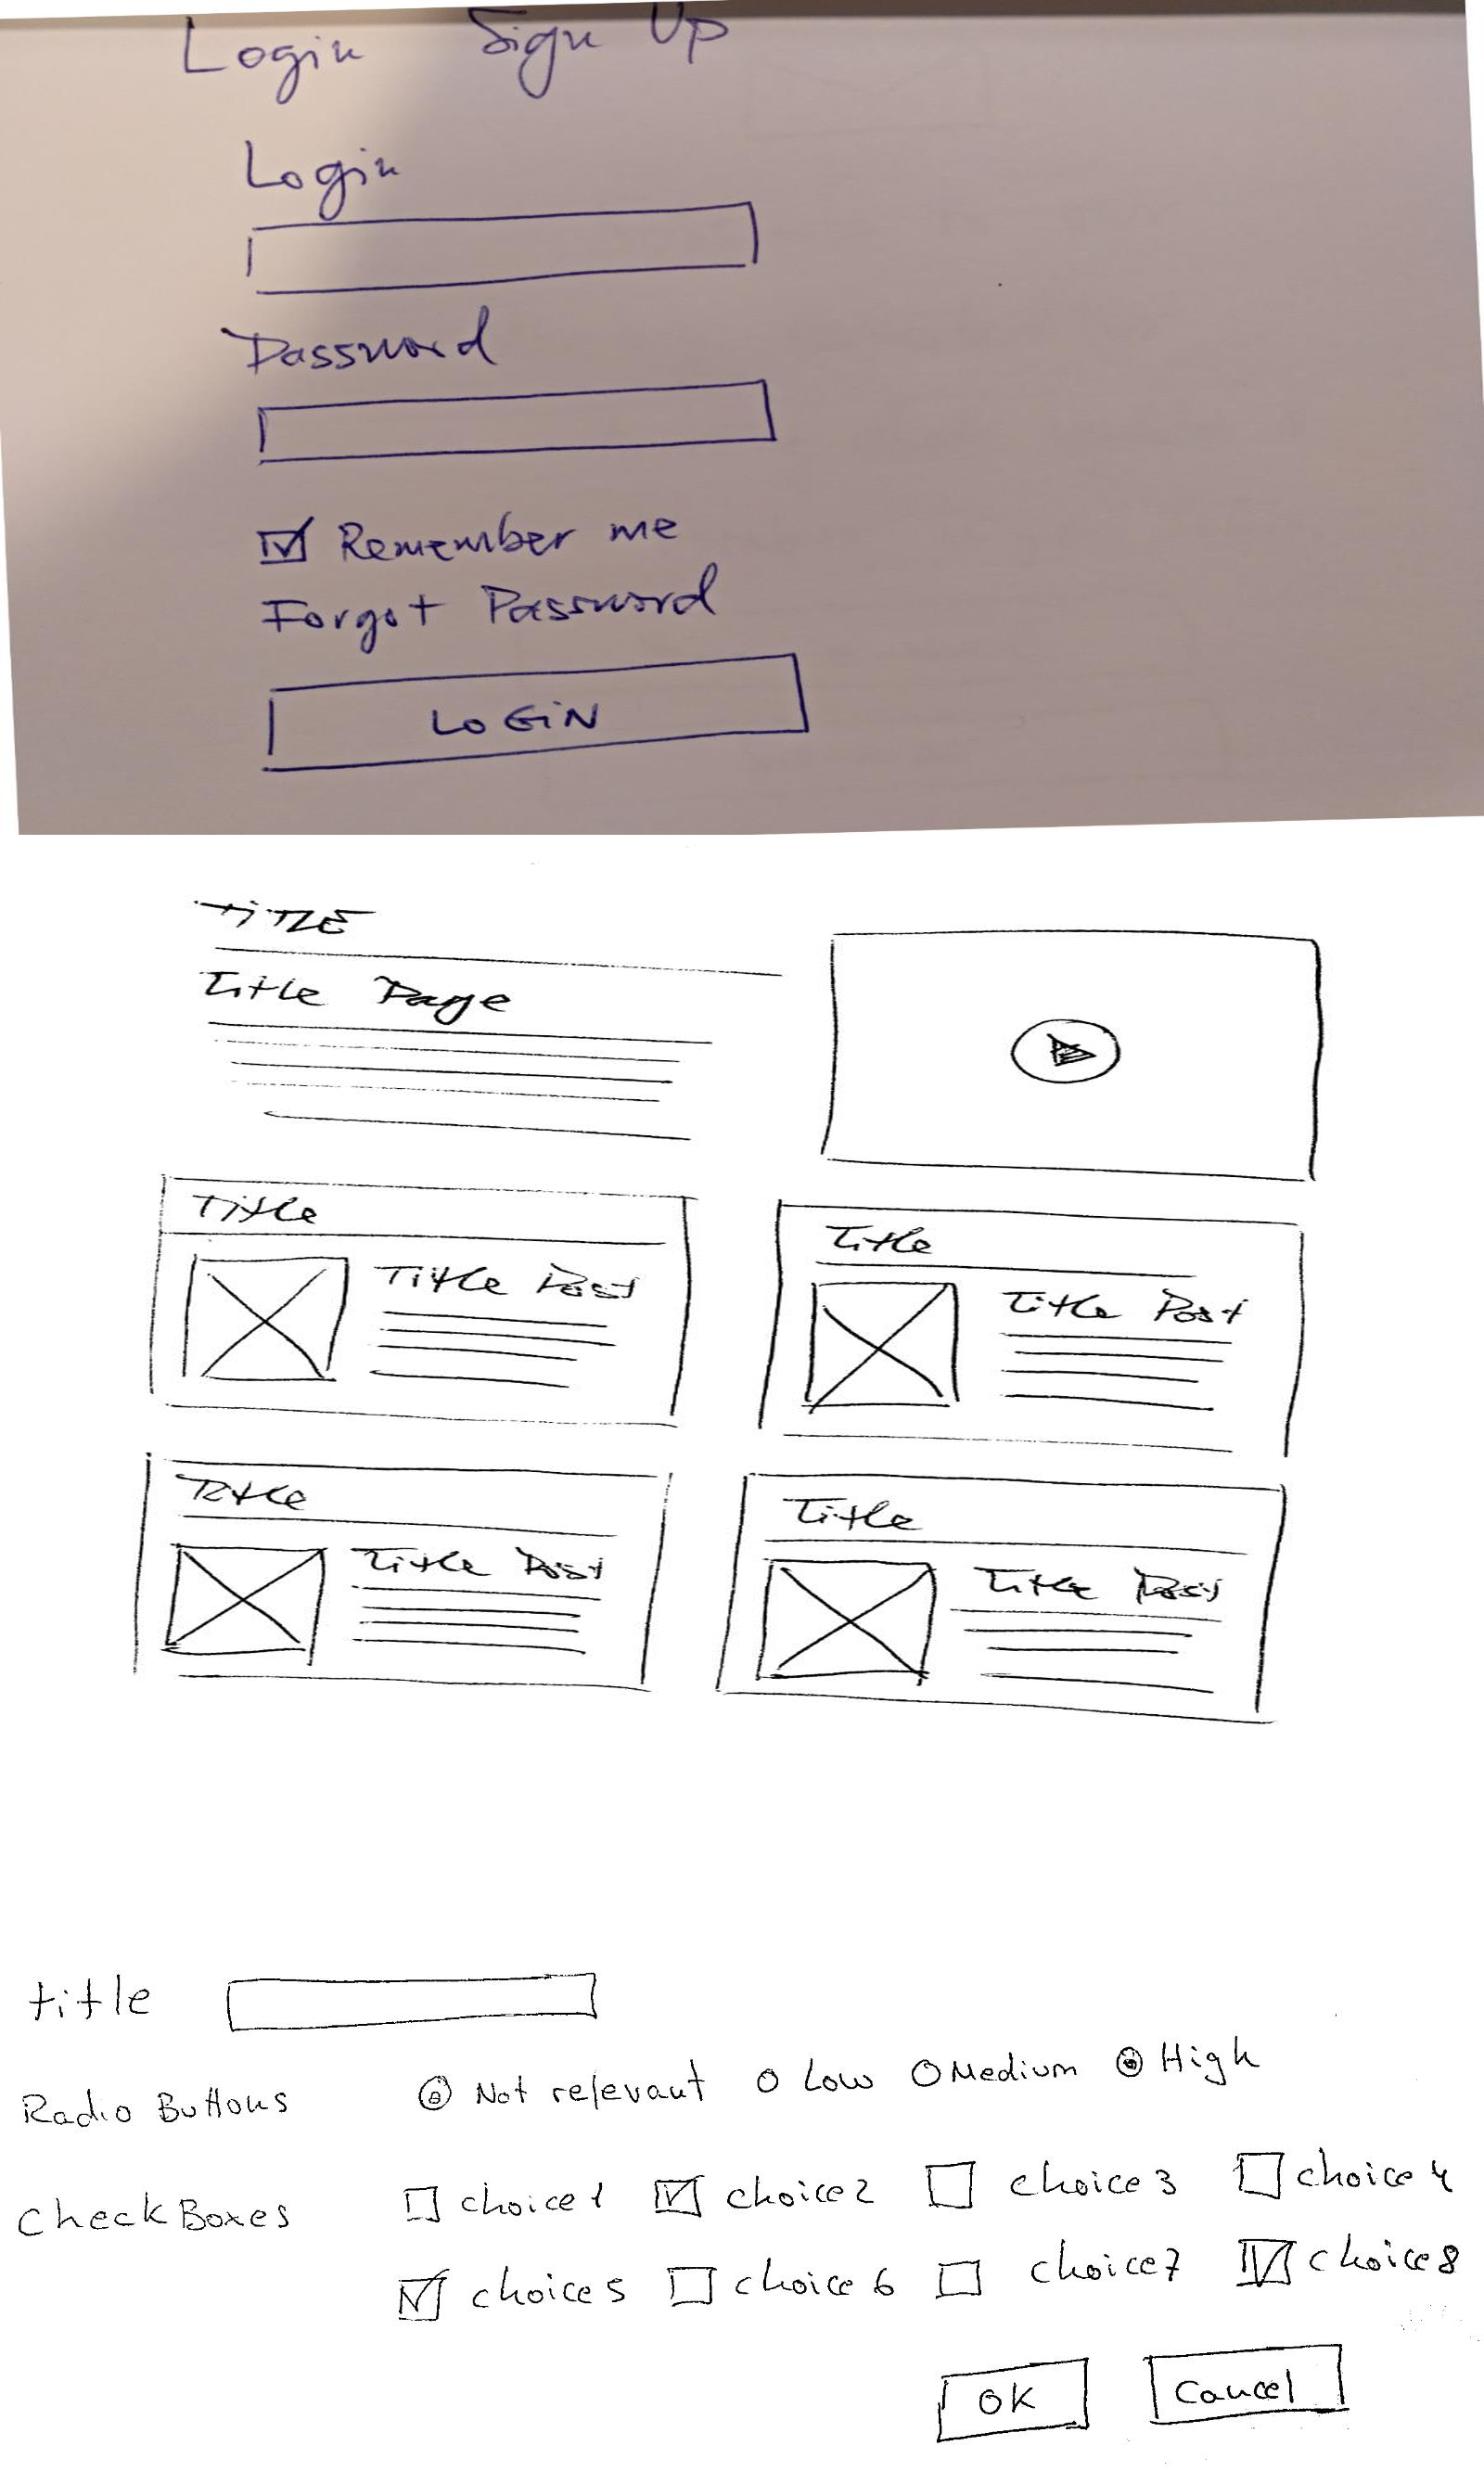 Login Sign Up
Login
Password
Remember me
Forgot Password
LOGIN
TITLE
Title Page
Title
Title Post
Title
Title Post
Title
Title Post
Title
Title Post
title
Radio Buttons Not relevant Low Medium High
CheckBoxes choice 1 choice 2 choice 3 choice 4
choice 5 choice 6 choice 7 choice 8
OK Cancel